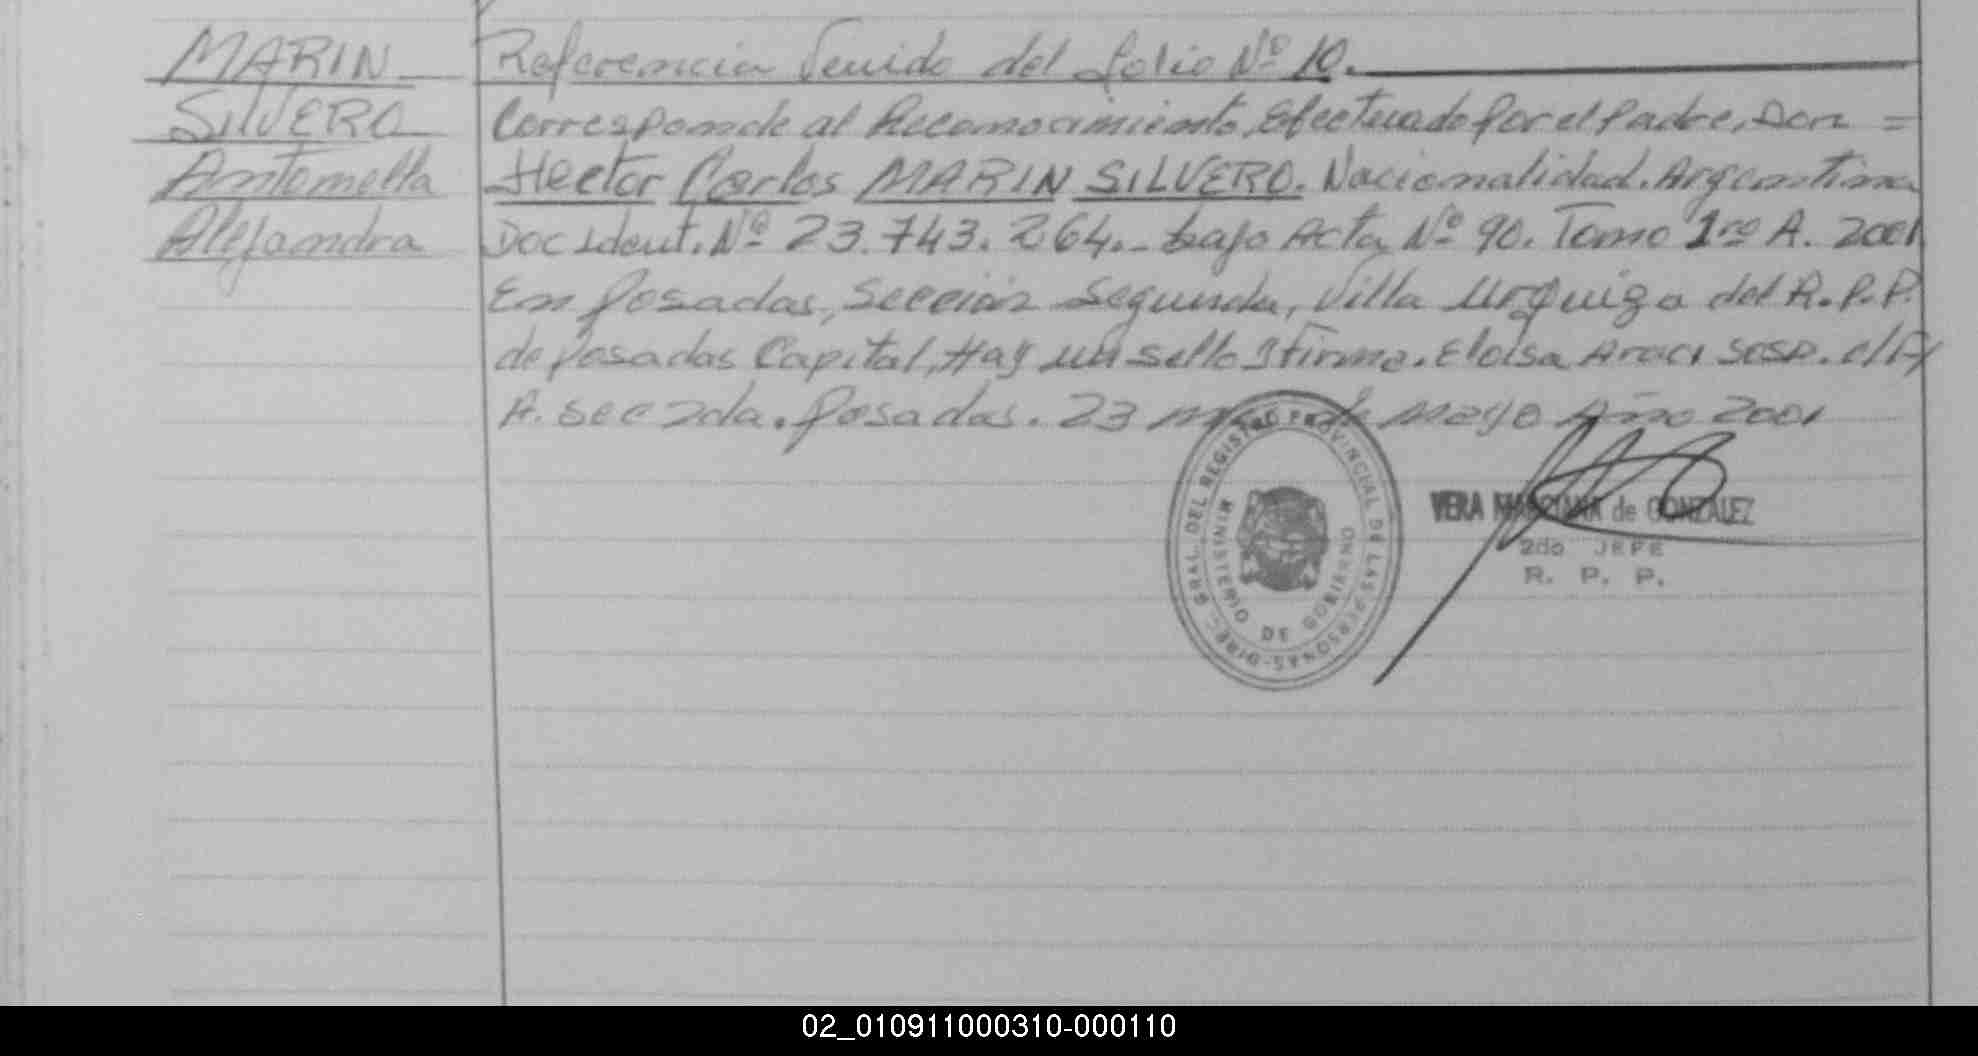 MARIN
SILVERO
Antonella
Alejandra
Referencia Venido del folio Nº 10.
Corresponde al Reconocimiento, Efectuado por el Padre, Don =
Hector Carlos MARIN SILVERO. Nacionalidad. Argentina
Doc Ident. Nº 23.743.264.- bajo Acta Nº 90. Tomo 1ro A. 2001
En Posadas, Sección Segunda, Villa Urquiza del R.P.P.
de Posadas Capital, Hay un sello y firma. Eloisa Araci Sosa.
A. Sec 2da. Posadas. 23 de Mayo Año 2001
DIREC. GRAL. DEL REGISTRO PROVINCIAL DE LAS PERSONAS
MINISTERIO DE GOBIERNO
VERA MARCIANA de GONZALEZ
2do JEFE
R. P. P.
02_010911000310-000110